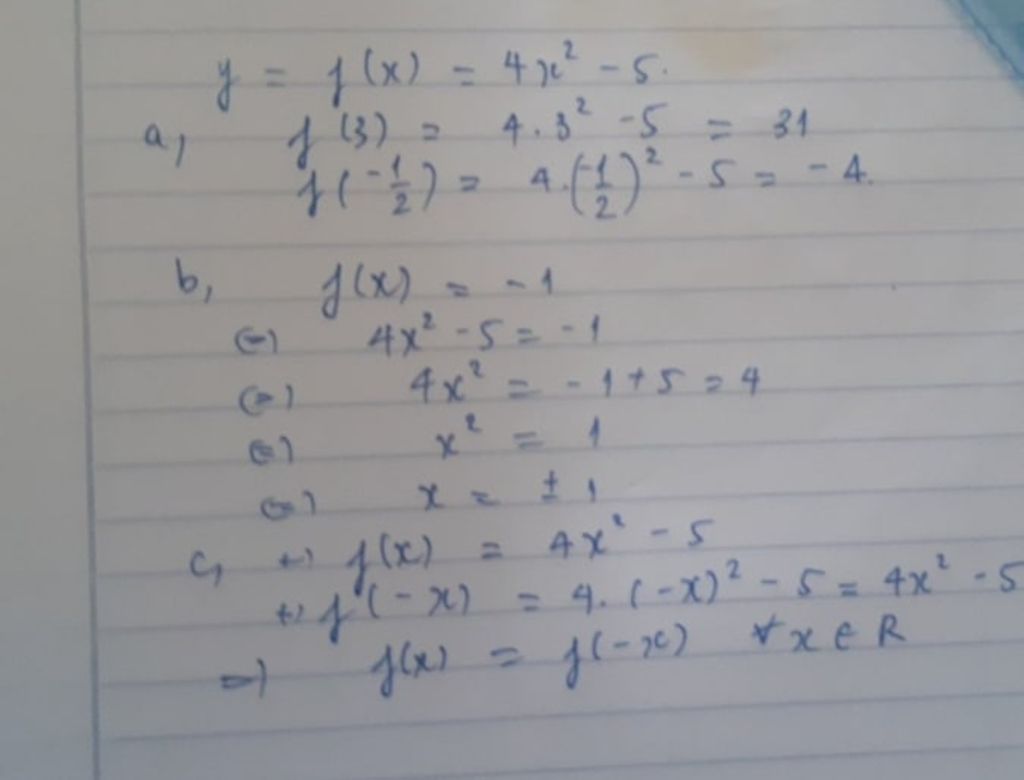 y = f(x) = 4x² - 5.
a, f(3) = 4.3² - 5 = 31
f(-1/2) = 4.(-1/2)² - 5 = -4.
b, f(x) = -1
(=) 4x² - 5 = -1
(=) 4x² = -1 + 5 = 4
(=) x² = 1
(=) x = ± 1
c, +) f(x) = 4x² - 5
+) f(-x) = 4.(-x)² - 5 = 4x² - 5
=) f(x) = f(-x) ∀x ∈ R